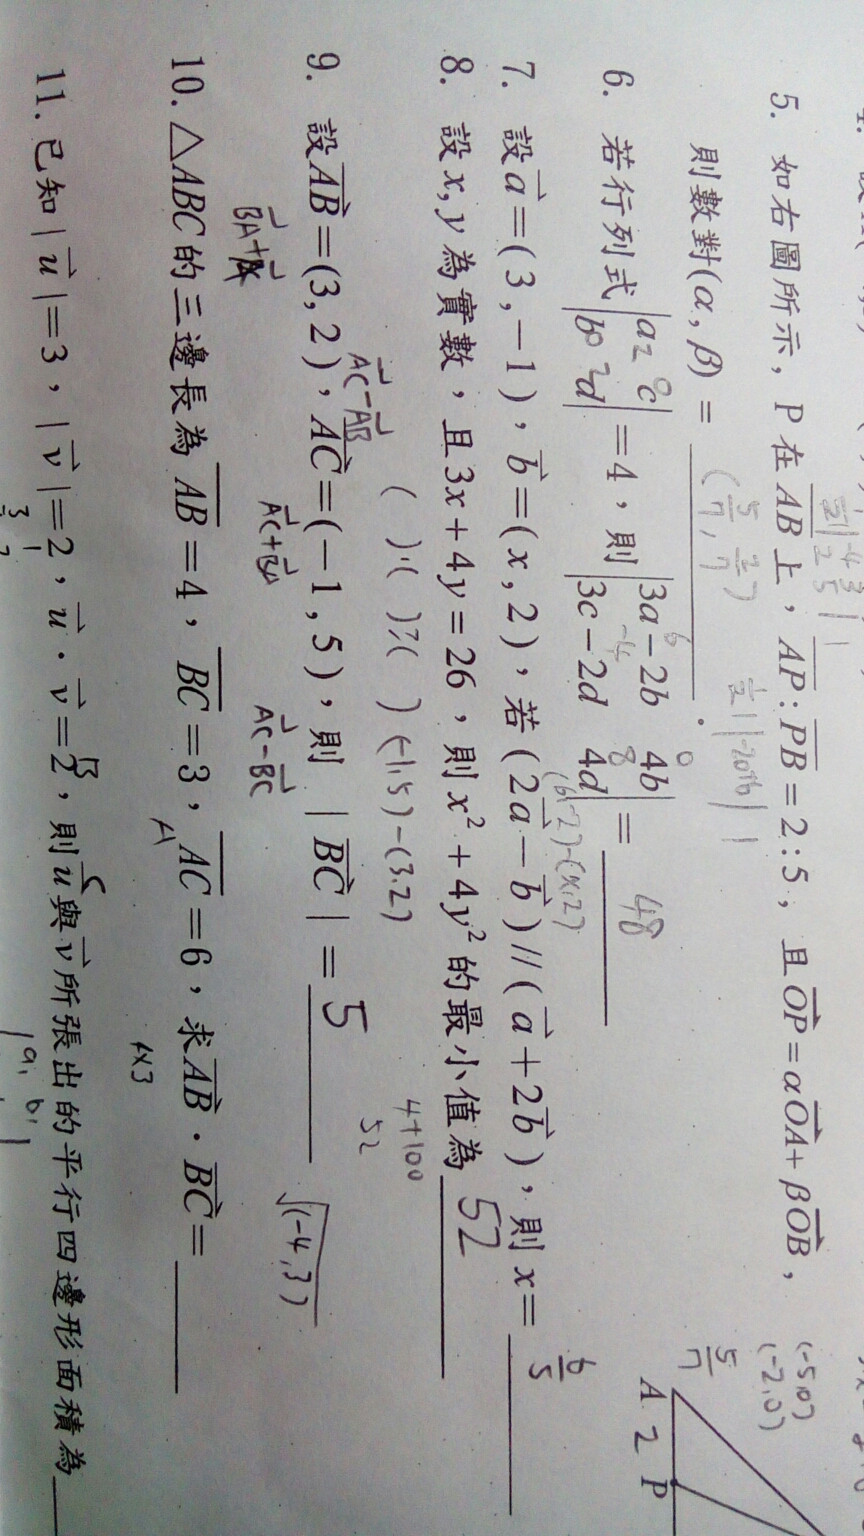 5. 如右圖所示，P在AB上，AP:PB=2:5，且OP=αOA+βOB，
則數對(α,β)=
(5/7, 2/7)
6. 若行列式|a c; b d|=4，則|3a-2b 4b; 3c-2d 4d|= 48
7. 設a=(3,-1)，b=(x,2)，若(2a-b)//(a+2b)，則x=
8. 設x,y為實數，且3x+4y=26，則x²+4y²的最小值為 52
( )·( )≥( ) (-1,5)-(3,2)
4+100
52
AC-AB
9. 設AB=(3,2)，AC=(-1,5)，則 |BC|= 5
√(-4,3)
BA+
AC+BA
AC-BC
10. △ABC的三邊長為AB=4，BC=3，AC=6，求AB·BC=
4x3
11. 已知|u|=3，|v|=2，u·v=2，則u與v所張出的平行四邊形面積為
5/7
(-5,0)
(-2,0)
A 2 P